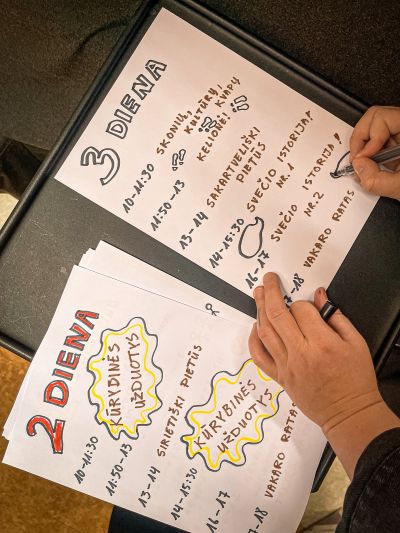 3 DIENA
10-11:30 SKONIŲ,
KULTŪRŲ,
KELIONĖ! KVAPŲ
11:50-13
13-14 SAKARTVELIŠKI
PIETŪS
14-15:30 SVEČIO ISTORIJA!
NR. 1
16-17 SVEČIO ISTORIJA!
NR. 2
7-18 VAKARO RATAS
2 DIENA
10-11:30 KŪRYBINĖS
11:50-13 UŽDUOTYS
13-14 SIRIETIŠKI PIETŪS
14-15:30 KŪRYBINĖS
16-17 UŽDUOTYS
7-18 VAKARO RATA